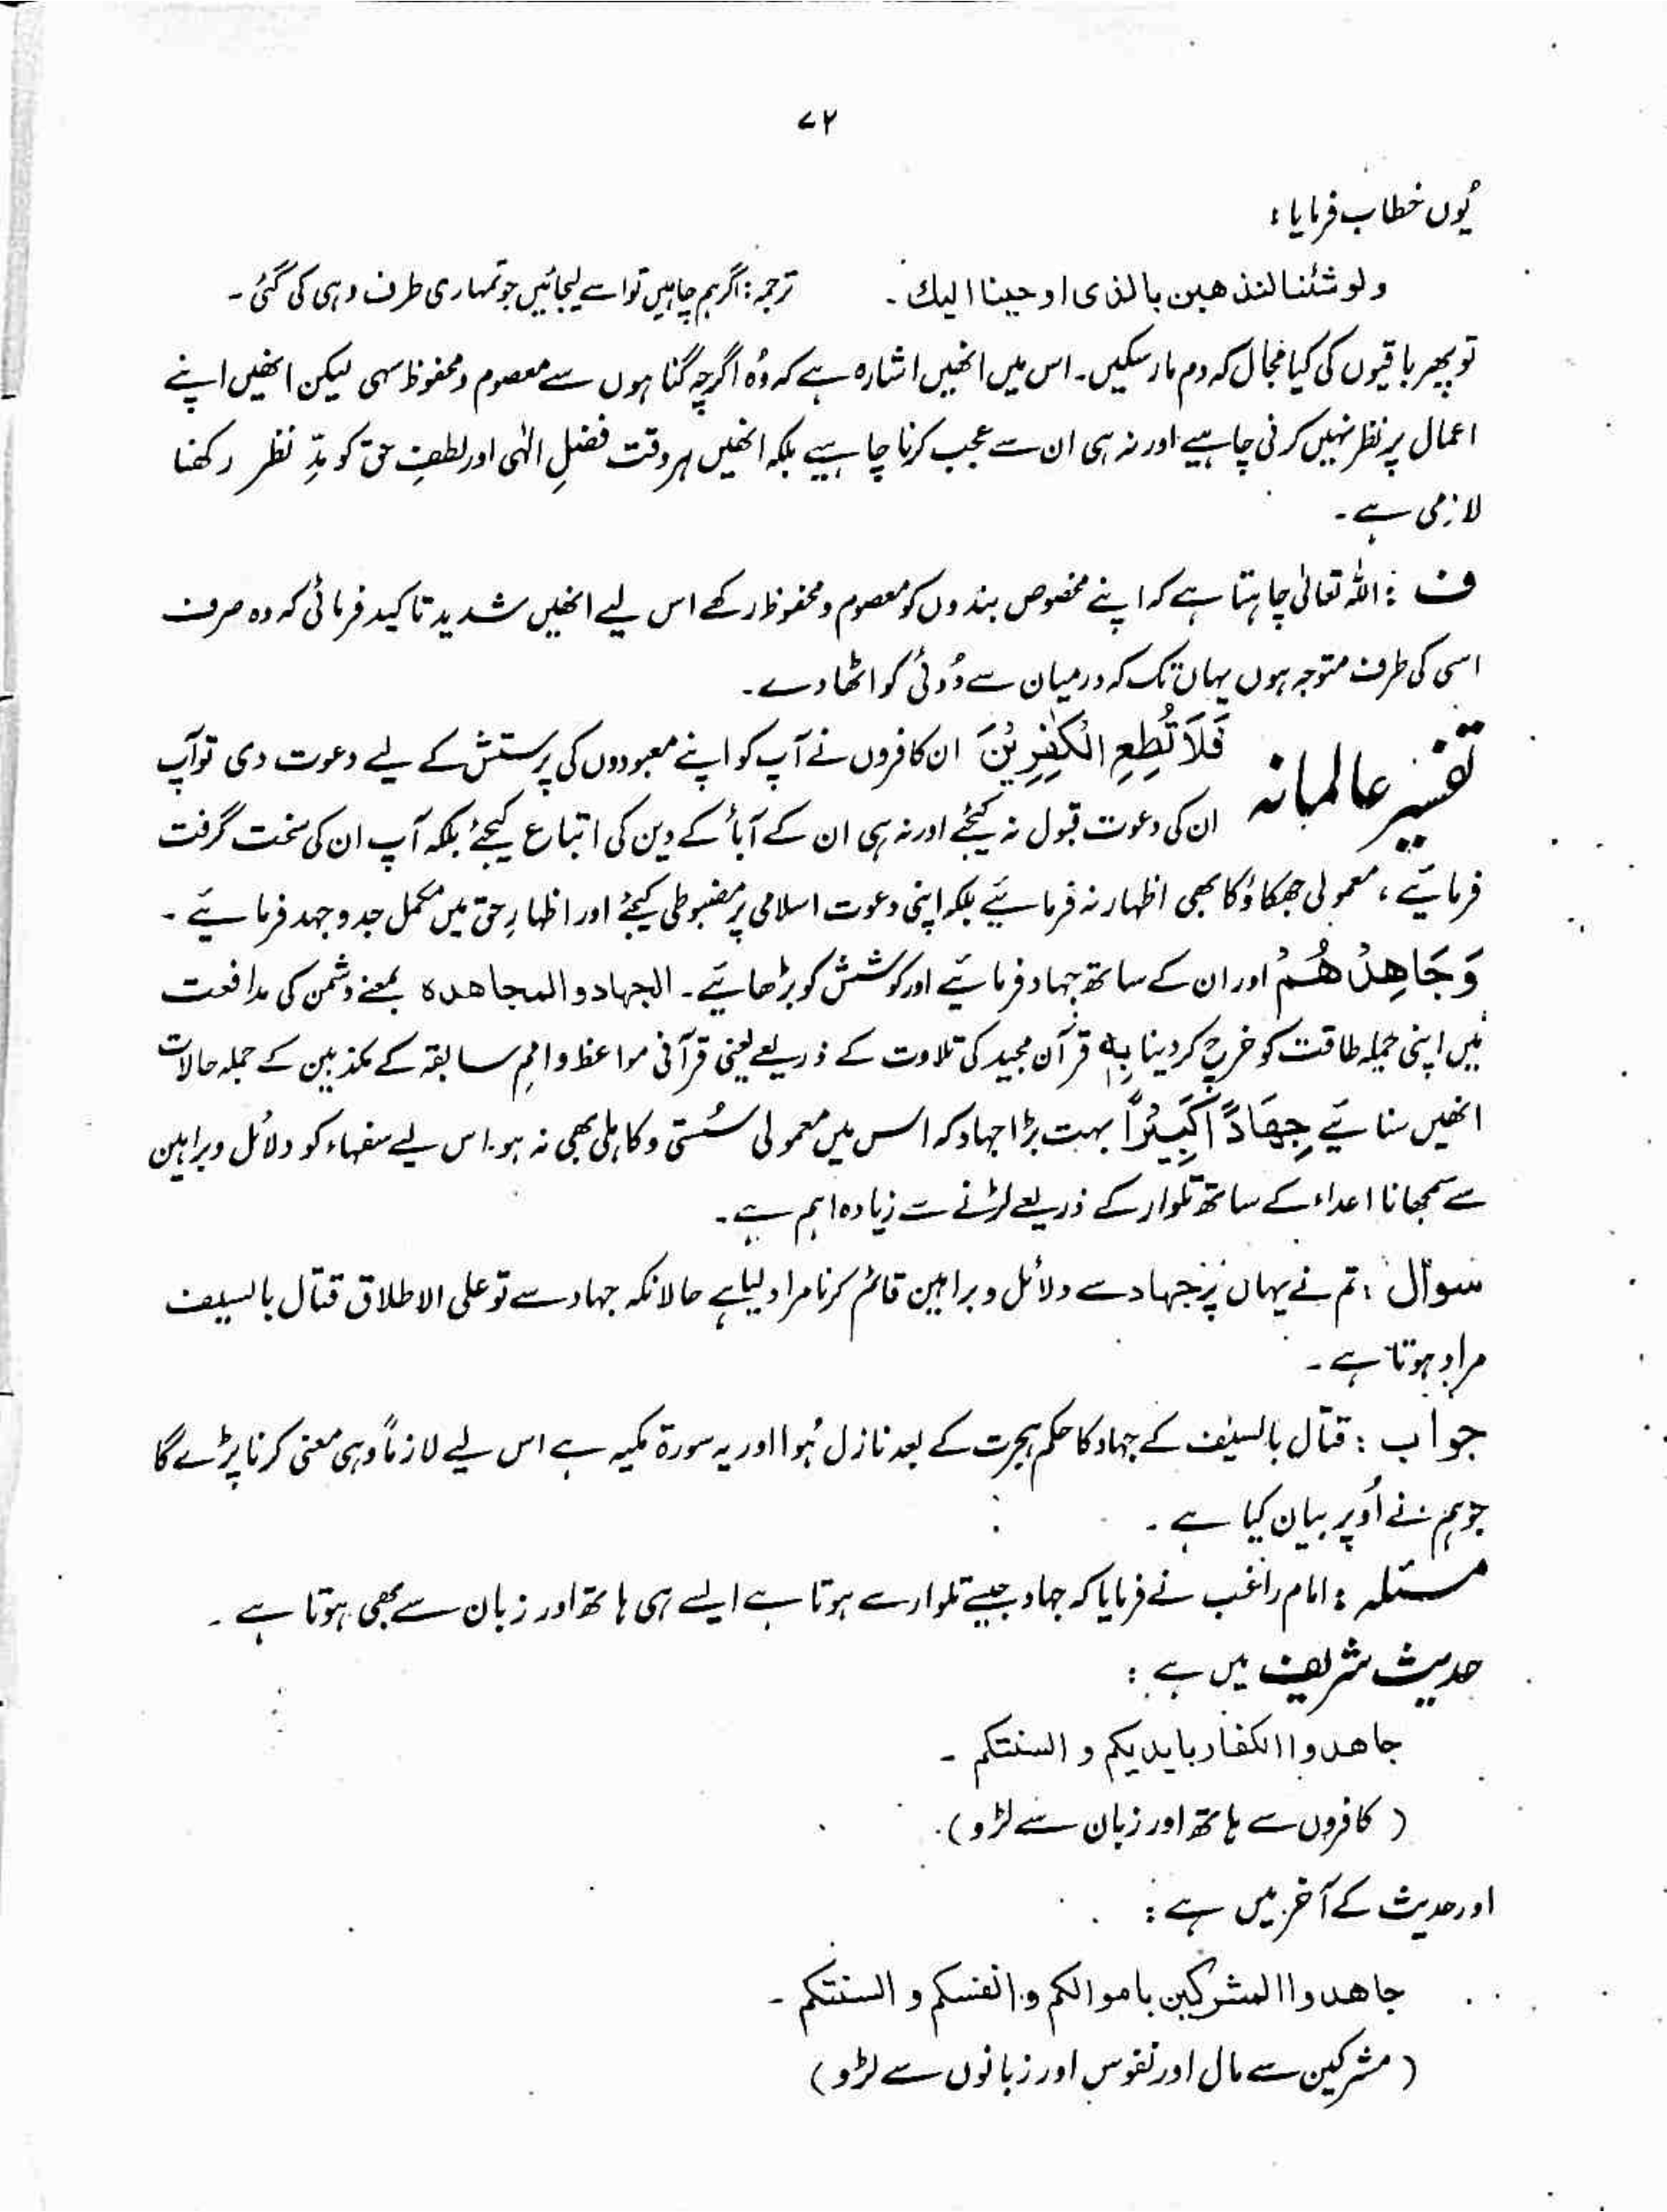 ۷۲
یُوں خطاب فرمایا :
ولو شئنا لنذهبن بالذی اوحینا الیك ۔ ترجمہ : اگر ہم چاہیں تو اسے لیجائیں جو تمہاری طرف وہی کی گئی ۔
تو پھر باقیوں کی کیا مجال کہ دم مار سکیں ۔ اس میں انھیں اشارہ ہے کہ وُہ اگرچہ گناہوں سے معصوم و محفوظ سہی لیکن انھیں اپنے
اعمال پر نظر نہیں کرنی چاہیے اور نہ ہی ان سے عجب کرنا چاہیے بلکہ انھیں ہر وقت فضلِ الٰہی اور لطفِ حق کو مدِّ نظر رکھنا
لازمی ہے ۔
ف : اللہ تعالیٰ چاہتا ہے کہ اپنے مخصوص بندوں کو معصوم و محفوظ رکھے اس لیے انھیں شدید تاکید فرمائی کہ وہ صرف
اسی کی طرف متوجہ ہوں یہاں تک کہ درمیان سے دُوئی کو اٹھا دے ۔
تفسیر عالمانہ فَلَا تُطِعِ الْكٰفِرِیْنَ ان کافروں نے آپ کو اپنے معبودوں کی پرستش کے لیے دعوت دی تو آپ
ان کی دعوت قبول نہ کیجئے اور نہ ہی ان کے آبأ کے دین کی اتباع کیجئے بلکہ آپ ان کی سخت گرفت
فرمائیے ، معمولی جھکاؤ کا بھی اظہار نہ فرمائیے بلکہ اپنی دعوت اسلامی پر مضبوطی کیجئے اور اظہارِ حق میں مکمل جدوجہد فرمائیے ۔
وَجَاهِدْهُمْ اور ان کے ساتھ جہاد فرمائیے اور کوشش کو بڑھائیے ۔ الجهاد والمجاهدة بمعنے دشمن کی مدافعت
میں اپنی جملہ طاقت کو خرچ کر دینا بِهٖ قرآن مجید کی تلاوت کے ذریعے یعنی قرآنی مواعظ و اممِ سابقہ کے مکذبین کے جملہ حالات
انھیں سنائیے جِهَادًا كَبِیْرًا بہت بڑا جہاد کہ اس میں معمولی سُستی و کاہلی بھی نہ ہو ۔ اس لیے سفہاء کو دلائل و براہین
سے سمجھانا اعداء کے ساتھ تلوار کے ذریعے لڑنے سے زیادہ اہم ہے ۔
سوال : تم نے یہاں پر جہاد سے دلائل و براہین قائم کرنا مراد لیا ہے حالانکہ جہاد سے تو علی الاطلاق قتال بالسیف
مراد ہوتا ہے ۔
جواب : قتال بالسیف کے جہاد کا حکم ہجرت کے بعد نازل ہُوا اور یہ سورۃ مکیہ ہے اس لیے لازماً وہی معنی کرنا پڑے گا
جو ہم نے اُوپر بیان کیا ہے ۔
مسئلہ : امام راغب نے فرمایا کہ جہاد جیسے تلوار سے ہوتا ہے ایسے ہی ہاتھ اور زبان سے بھی ہوتا ہے ۔
حدیث شریف میں ہے :
جاهدوا الكفار بایدیكم و السنتكم ۔
( کافروں سے ہاتھ اور زبان سے لڑو ) ۔
اور حدیث کے آخر میں ہے :
جاهدوا المشركین باموالكم و انفسكم و السنتكم ۔
( مشرکین سے مال اور نفوس اور زبانوں سے لڑو )